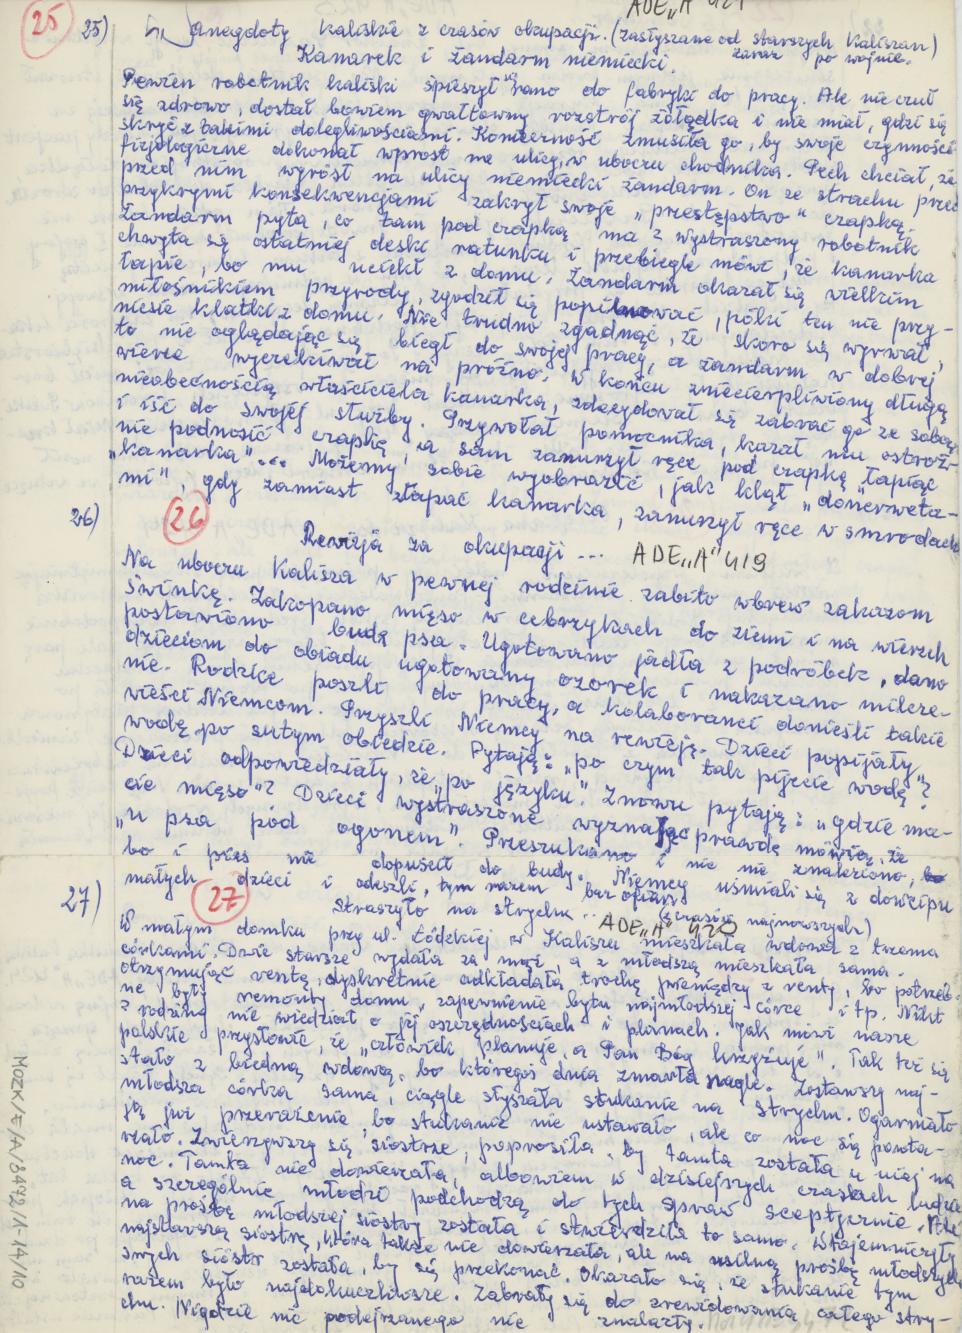 ADE„A" 421
25 25) Anegdoty kaliskie z czasów okupacji. (zasłyszane od starszych Kaliszan)
Kanarek i żandarm niemiecki zaraz po wojnie.
Pewien robotnik kaliski śpieszył się rano do fabryki do pracy. Ale nie czuł
się zdrowo, dostał bowiem gwałtowny rozstrój żołądka i nie miał, gdzie się
skryć z takimi dolegliwościami. Konieczność zmusiła go, by swoje czynności
fizjologiczne dokonał wprost na ulicy, w uboczu chodnika. Pech chciał, że
przed nim wyrósł na ulicy niemiecki żandarm. On ze strachu przed
przykrymi konsekwencjami zakrył swoje „przestępstwo" czapką.
Żandarm pyta, co tam pod czapką ma? Wystraszony robotnik
chwyta się ostatniej deski ratunku i przebiegle mówi, że kanarka
łapie, bo mu uciekł z domu. Żandarm okazał się wielkim
miłośnikiem przyrody, zgodził się popilnować, póki ten nie przy-
niesie klatki z domu. Nie trudno zgadnąć, że skoro się wyrwał,
to nie oglądając się biegł do swojej pracy, a żandarm w dobrej
wierze wyczekiwał na próżno. W końcu zniecierpliwiony długą
nieobecnością właściciela kanarka, zdecydował się zabrać go ze sobą
i iść do swojej służby. Przywołał pomocnika, kazał mu ostroż-
nie podnosić czapkę, a sam zanurzył ręce pod czapkę łapiąc
„kanarka"... Możemy sobie wyobrazić, jak klął „donerweta-
mi" gdy zamiast złapać kanarka, zanurzył ręce w smrodach
26) 26 Rewizja za okupacji ... ADE„A" 419
Na uboczu Kalisza w pewnej rodzinie zabito wbrew zakazom
świnkę. Zakopano mięso w cebrzykach do ziemi i na wierzch
postawiono budę psa. Ugotowano jadła z podróbek, dano
dzieciom do obiadu ugotowany ozorek i nakazano milcze-
nie. Rodzice poszli do pracy, a kolaboranci donieśli takie
wieści Niemcom. Przyszli Niemcy na rewizję. Dzieci popijały
wodę po sutym obiedzie. Pytają: „po czym tak pijecie wodę"?
Dzieci odpowiedziały, że „po języku". Znowu pytają: „gdzie ma-
cie mięso"? Dzieci wystraszone wyznając prawdę mówią, że
„u psa pod ogonem". Przeszukano i nic nie znaleziono,
bo i pies nie dopuścił do budy. Niemcy uśmiali się z dowcipu
małych dzieci i odeszli, tym razem bez ofiary.
27) 27 Straszyło na strychu... (z czasów najnowszych)
ADE„A" 420
W małym domku przy ul. Łódzkiej w Kaliszu mieszkała wdowa z trzema
córkami. Dwie starsze wydała za mąż, a z młodszą mieszkała sama.
Otrzymując rentę, dyskretnie odkładała trochę pieniędzy z renty, bo potrzeb-
ne były remonty domu, zapewnienie bytu najmłodszej córce i tp. Nikt
z rodziny nie wiedział o jej oszczędnościach i planach. Jak mówi nasze
polskie przysłowie, że „człowiek planuje, a Pan Bóg krzyżuje". Tak też się
stało z biedną wdową, bo któregoś dnia zmarła nagle. Zostawszy naj-
młodsza córka sama, ciągle słyszała stukanie na strychu. Ogarniało
ją już przerażenie, bo stukanie nie ustawało, ale co noc się powta-
rzało. Zwierzywszy się siostrze, poprosiła, by tamta została u niej na
noc. Tamta nie dowierzała, albowiem w dzisiejszych czasach ludzie
a szczególnie młodzi podchodzą do tych spraw sceptycznie.
na prośbę młodszej siostry została i stwierdziła to samo. Wtajemniczyły
najstarszą siostrę, która także nie dowierzała, ale na usilną prośbę młodszych
swych sióstr została, by się przekonać. Okazało się, że stukanie tym
razem było najdokuczliwsze. Zabrały się do zrewidowania całego stry-
chu. Nigdzie nic podejrzanego nie znalazły.
MOZK/E/A/8422/1X-14/10